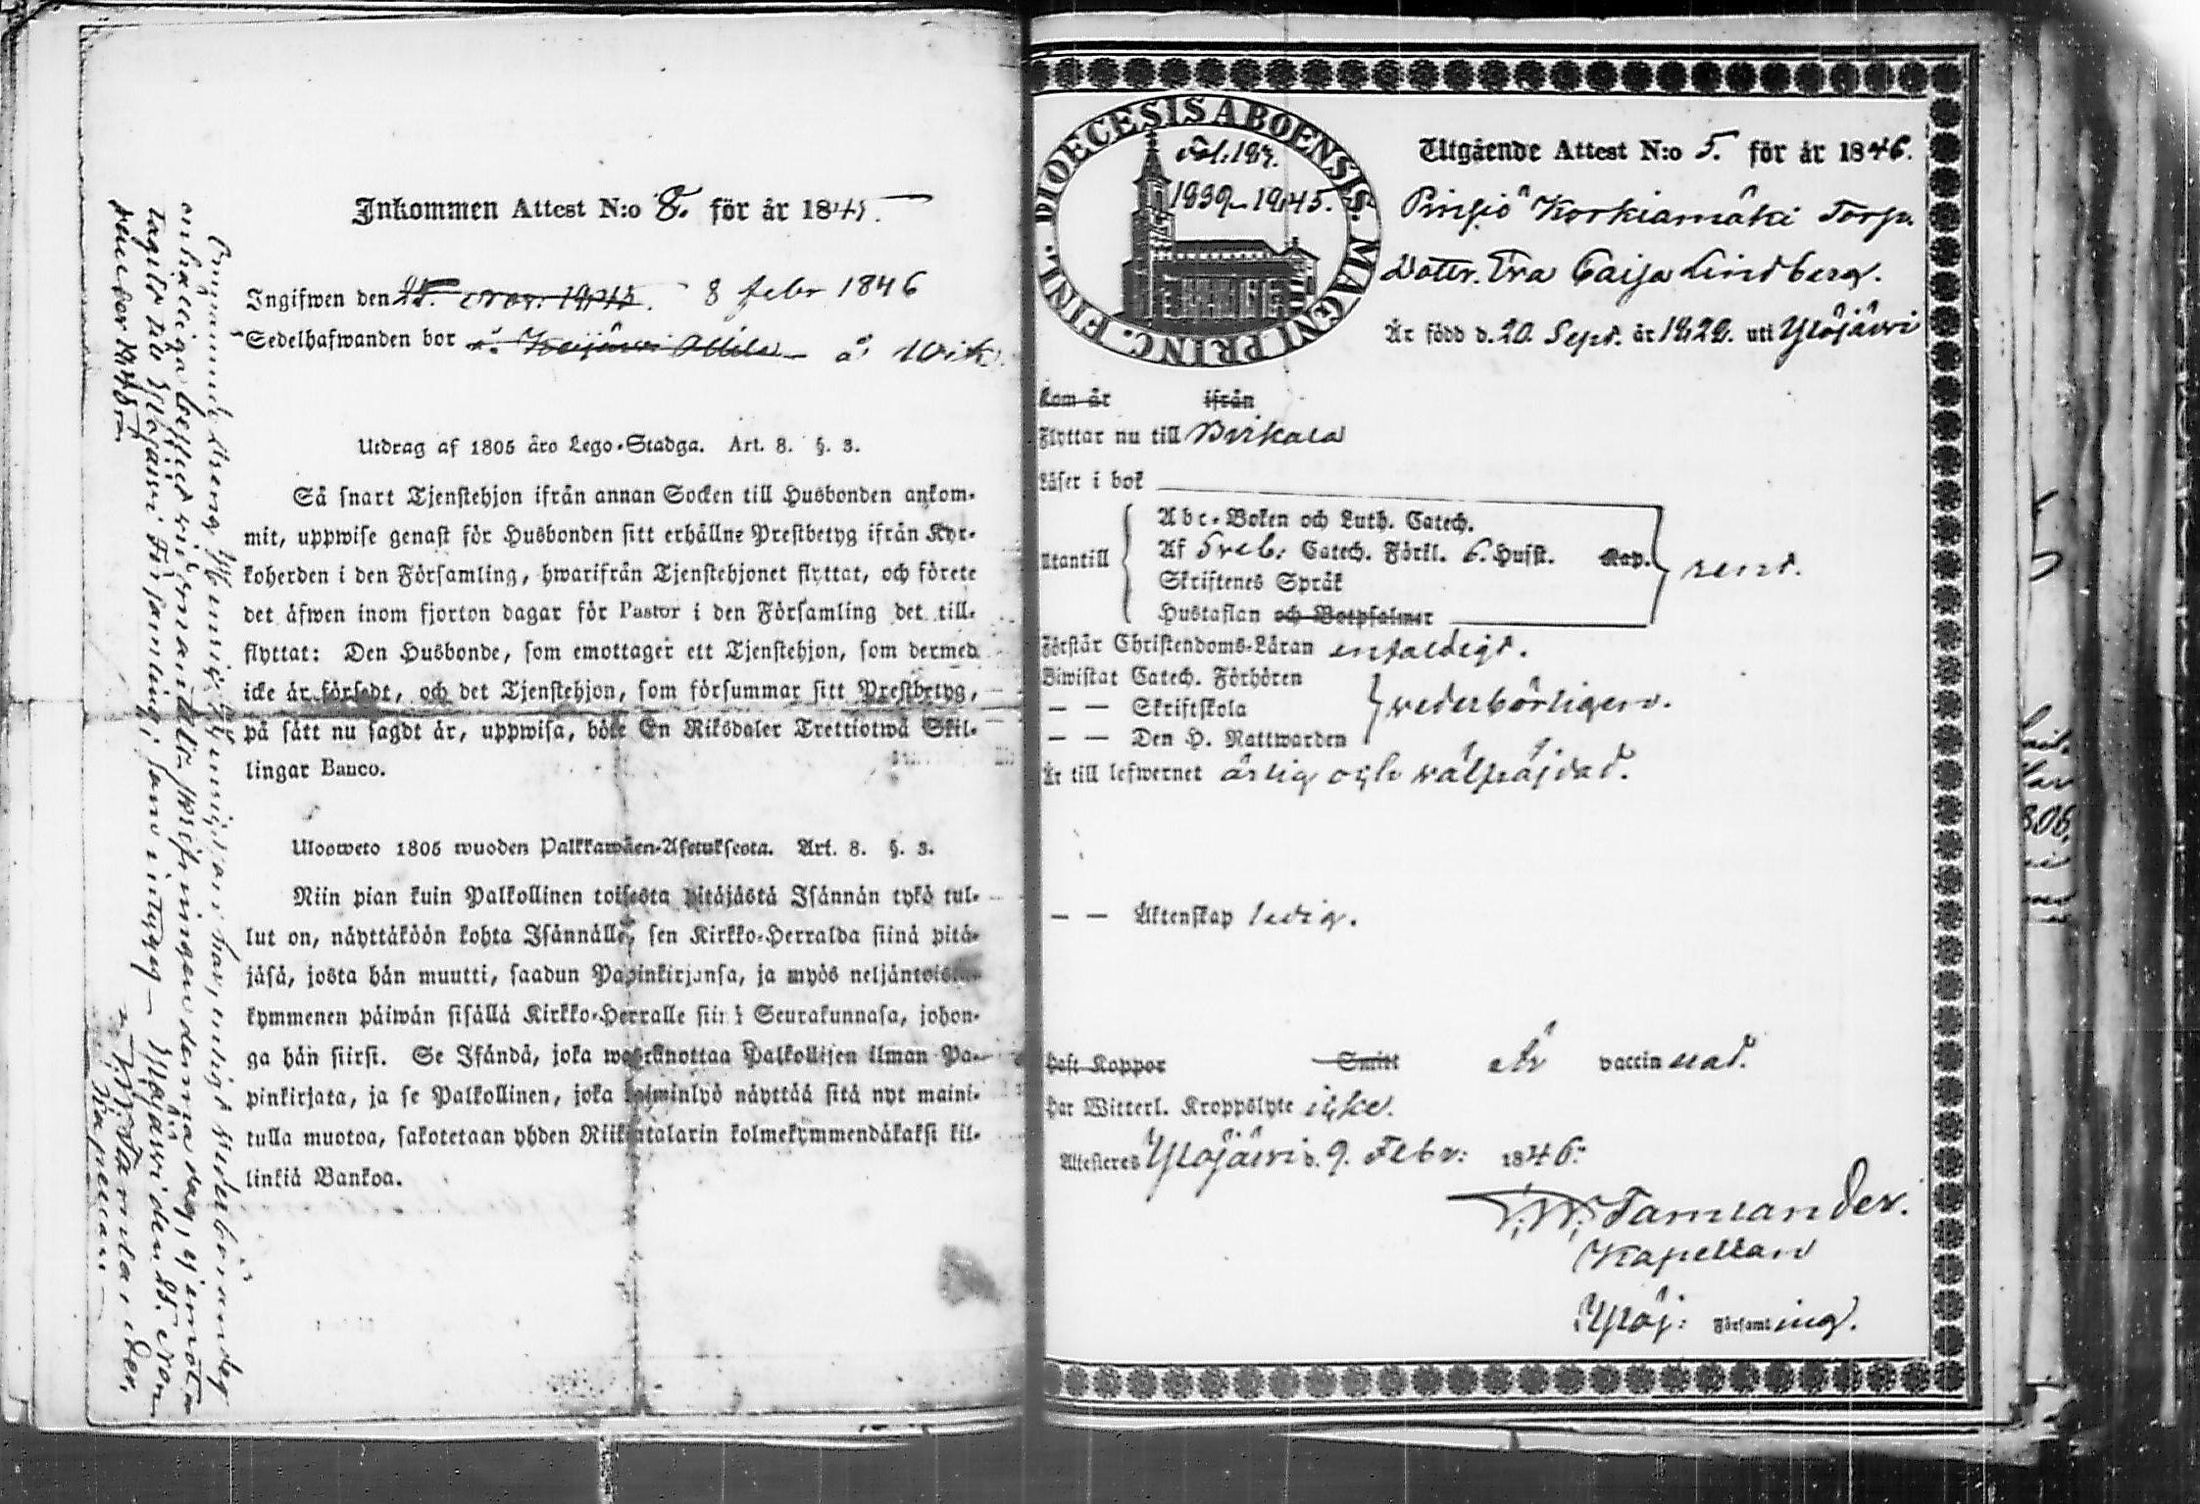 Inkommen Attest N:o 8. för år 1845.
Ingifwen den 25. Nov. 1845. 8 febr 1846
Sedelhafwanden bor å Wik
Utdrag af 1805 års Lego-Stadga. Art. 8. §. 3.
Så snart Tjenstehjon ifrån annan Socken till Husbonden ankom-
mit, uppwise genast för Husbonden sitt erhållne Prestbetyg ifrån Kyr-
koherden i den Församling, hwarifrån Tjenstehjonet flyttat, och förete
det äfwen inom fjorton dagar för Pastor i den Församling det till-
flyttat: Den Husbonde, som emottager ett Tjenstehjon, som dermed
icke är försedt, och det Tjenstehjon, som försummar sitt Prestbetyg,
på sätt nu sagdt är, uppwisa, böte En Riksdaler Trettiotwå Skil-
lingar Banco.
Ulosweto 1805 wuoden Palkkawäen-Asetuksesta. Art. 8. §. 3.
Niin pian kuin Palkollinen toisesta pitäjästä Isännän tykö tul-
lut on, näyttäköön kohta Isännälle, sen Kirkko-Herralda siinä pitä-
jäsä, josta hän muutti, saadun Papinkirjansa, ja myös neljäntoista-
kymmenen päiwän sisällä Kirkko-Herralle siinä Seurakunnasa, johon-
ga hän siirsi. Se Isändä, joka wastanottaa Palkollisen ilman Pa-
pinkirjata, ja se Palkollinen, joka laiminlyö näyttää sitä nyt maini-
tulla muotoa, sakotetaan yhden Riikintalarin kolmekymmendäkaksi kil-
linkiä Bankoa.
enhälliga
tagits till Ylöjärvi Församling, som intygas Ylöjärvi den 25. Nov
1845
Tamlander.
Kapellan
DIOECESIS ABOENSIS. MAGNI PRINC. FINL.
Fol. 187.
1839–1845.
Utgående Attest N:o 5. för år 1846.
Pinsiö Korkiamäki Torp.
Dottr. Eva Caisa Lindberg.
Är född d. 20. Sept. år 1829. uti Ylöjärvi
Kom år ifrån
Flyttar nu till Birkala
Läser i bok
Utantill
Abc-Boken och Luth. Catech.
Af Sveb: Catech. Förkl. 6. Hufst. Kap. rent.
Skriftenes Språk
Hustaflan och Botpsalmer
Förstår Christendoms-Läran enfaldigt.
Biwistat Catech. Förhören
— — Skriftskola vederbörligen.
— — Den H. Nattwarden
Är till lefwernet ärlig och välfrejdad.
— — Äktenskap ledig.
Haft Koppor Smitt Är vaccinerad.
Har Witterl. Kroppslyte icke.
Attesteres Ylöjärvi d. 9. Febr: 1846.
Tamlander.
Kapellan
Ylöj: Församling.